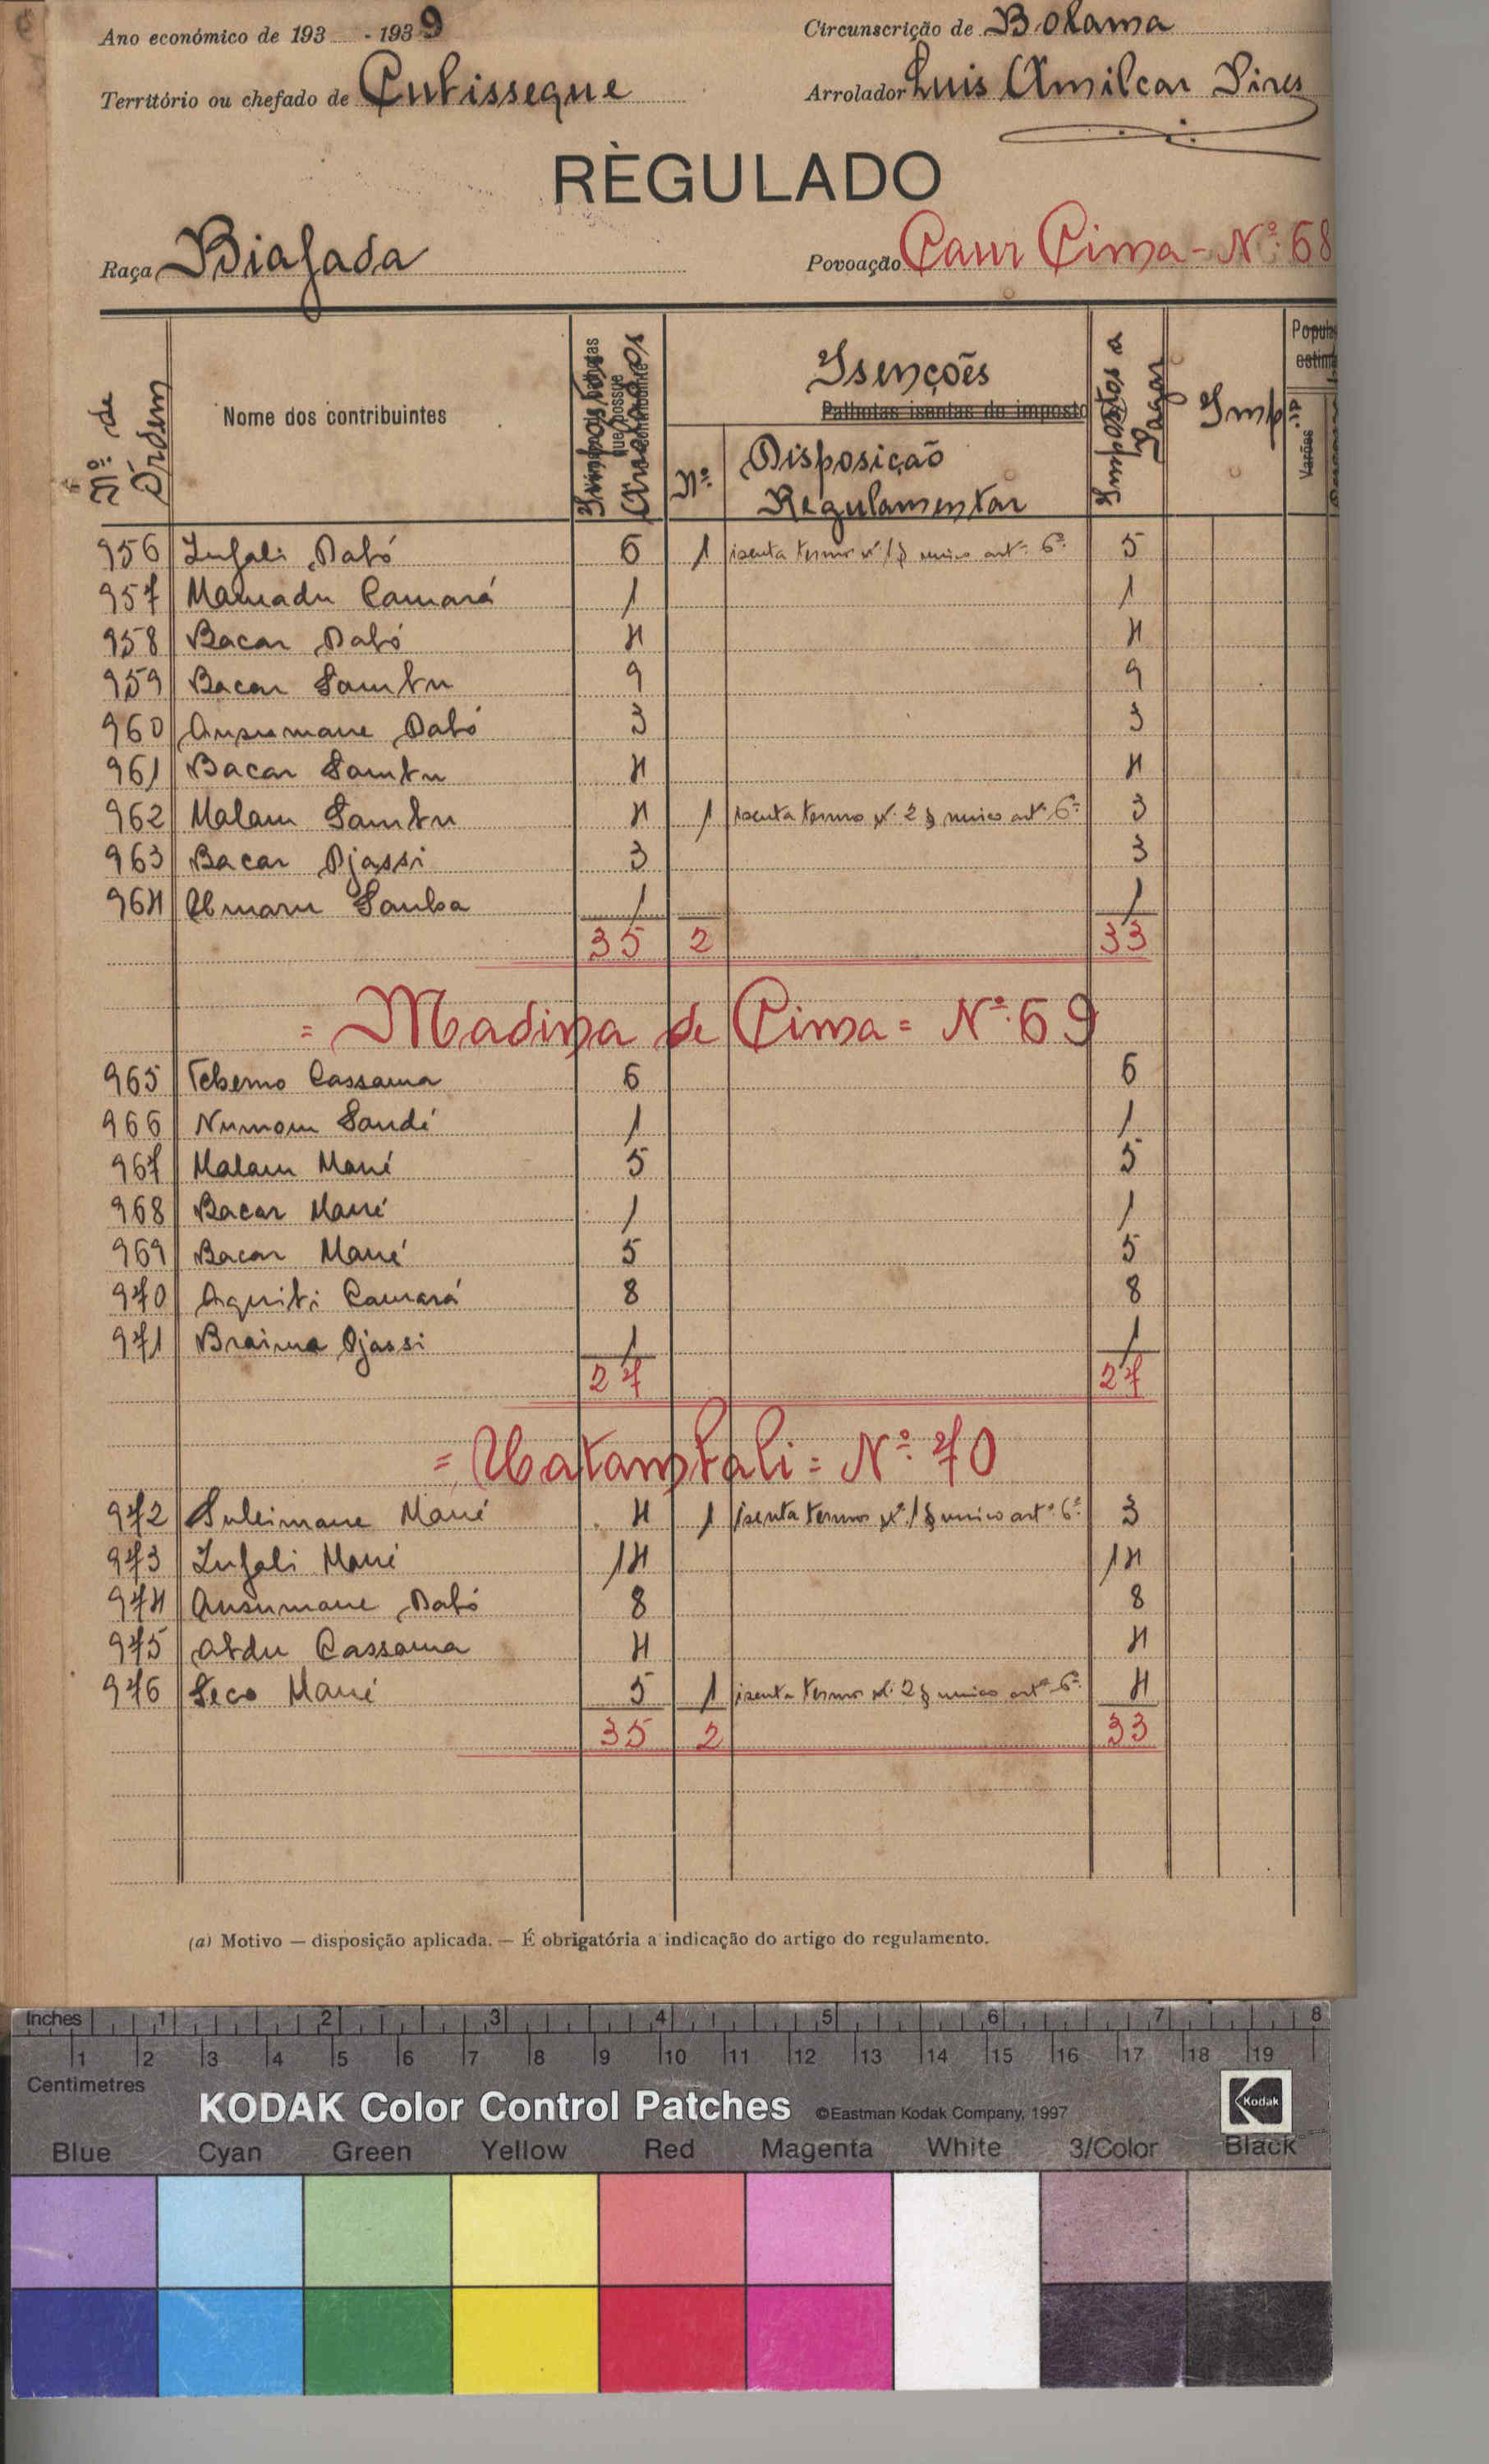 Ano económico de 193 - 1939
Circunscrição de Bolama
Território ou chefado de Cubisseque
Arrolador Luis Amilcar Pires
RÈGULADO
Raça Biafada
Povoação Caur Cima - Nº. 68
Nº. de Órdem
Nome dos contribuintes
Isenções
Palhotas isentas do imposto
Nº.
Disposição Regulamentar
Impostos a Pagar
Imp
Varões
956 Infali Dabó 6 1 isenta termos nº 1 § unico artº. 6º. 5
957 Mamadu Camará 1 1
958 Bacar Dabó 4 4
959 Bacar Sambu 9 9
960 Ansumane Dabó 3 3
961 Bacar Sambu 4 4
962 Malam Sambu 4 1 isenta termos nº. 2 § unico artº. 6º. 3
963 Bacar Djassi 3 3
964 Umaru Sanha 1 1
35 2 33
= Madina de Cima = Nº. 69
965 Tcherno Cassama 6 6
966 Numom Sandé 1 1
967 Malam Mané 5 5
968 Bacar Mané 1 1
969 Bacar Mané 5 5
970 Aquibi Camará 8 8
971 Braima Djassi 1 1
27 27
= Uatambali = Nº. 70
972 Suleimane Mané 4 1 isenta termos nº. 1 § unico artº. 6º. 3
973 Infali Mané 14 14
974 Ansumane Dabó 8 8
975 Abdu Cassama 4 4
976 Seco Mané 5 1 isenta termos nº. 2 § unico artº. 6º. 4
35 2 33
(a) Motivo — disposição aplicada. — É obrigatória a indicação do artigo do regulamento.
Inches 1 2 3 4 5 6 7 8
1 2 3 4 5 6 7 8 9 10 11 12 13 14 15 16 17 18 19
Centimetres
KODAK Color Control Patches ©Eastman Kodak Company, 1997 Kodak
Blue Cyan Green Yellow Red Magenta White 3/Color Black